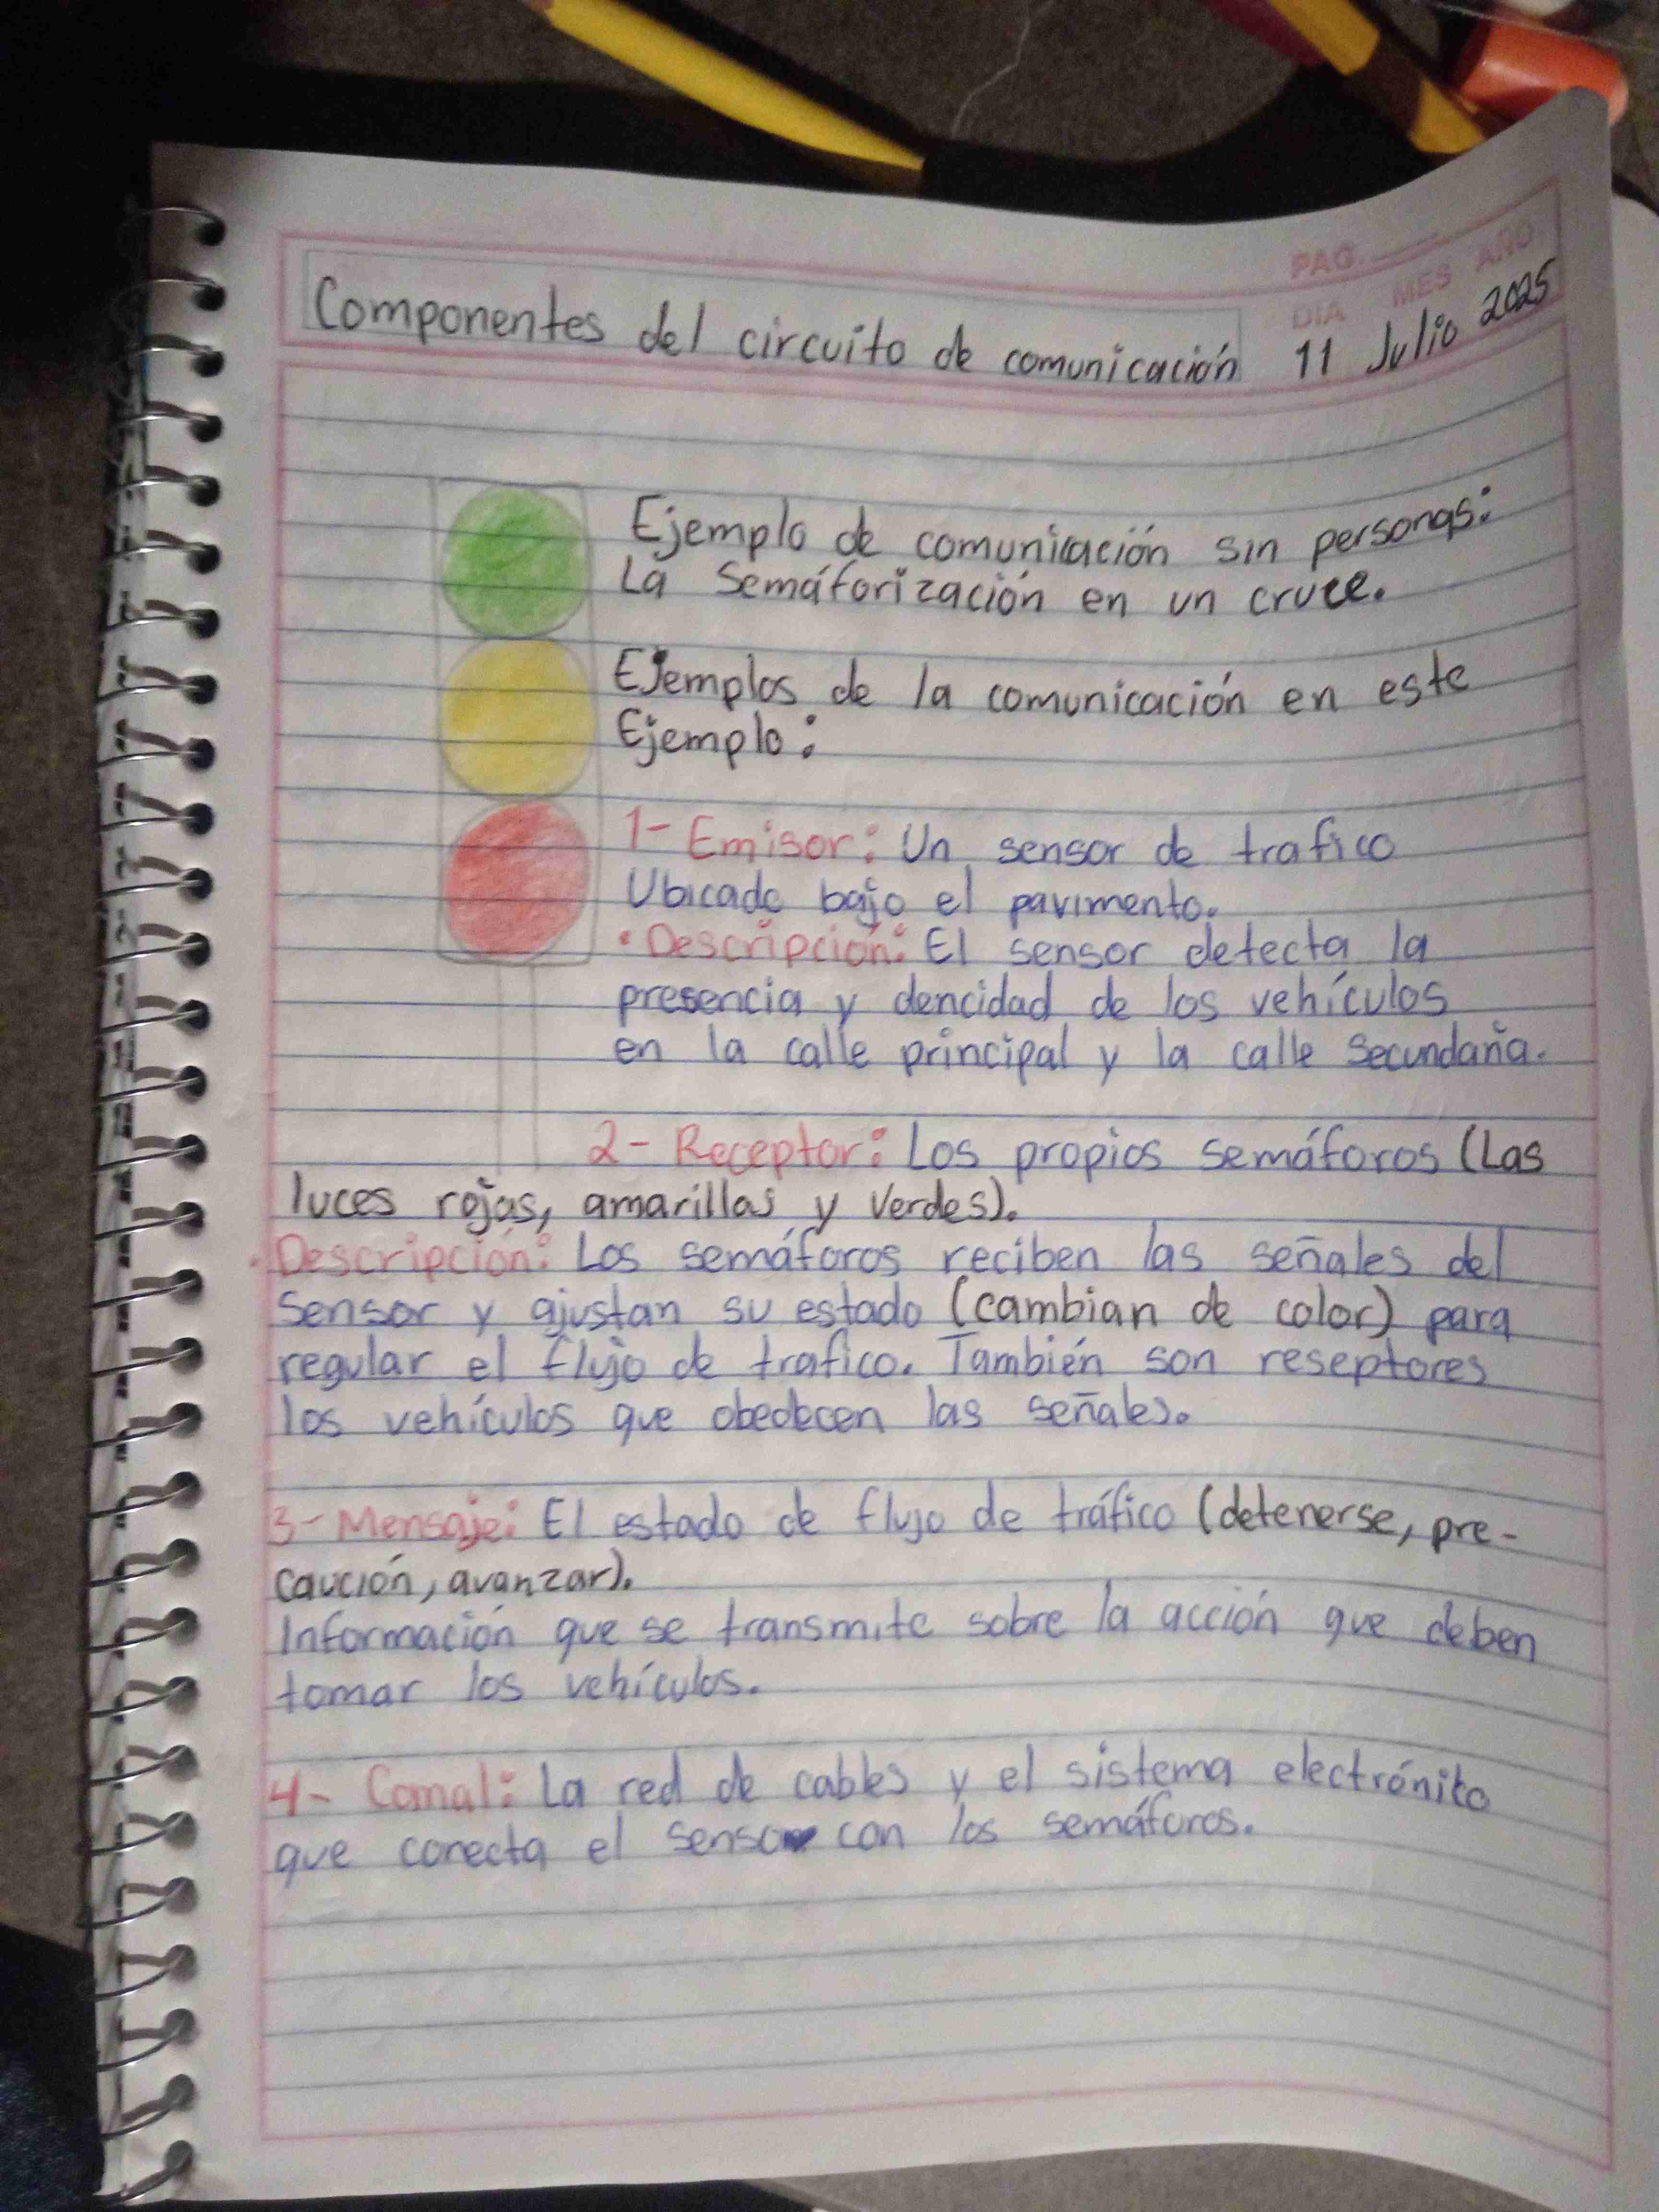 PAG.
DIA MES AÑO
Componentes del circuito de comunicación 11 Julio 2025
Ejemplo de comunicación sin personas:
La Semáforización en un cruce.
Ejemplos de la comunicación en este
Ejemplo:
1- Emisor: Un sensor de trafico
Ubicado bajo el pavimento.
• Descripción: El sensor detecta la
presencia y dencidad de los vehículos
en la calle principal y la calle Secundaria.
2- Receptor: Los propios semáforos (Las
luces rojas, amarillas y Verdes).
• Descripción: Los semáforos reciben las señales del
Sensor y ajustan su estado (cambian de color) para
regular el flujo de trafico. También son reseptores
los vehículos que obedecen las señales.
3- Mensaje: El estado de flujo de tráfico (detenerse, pre-
caución, avanzar).
Información que se transmite sobre la acción que deben
tomar los vehículos.
4- Camal: La red de cables y el sistema electrónico
que conecta el Sensor con los semáforos.